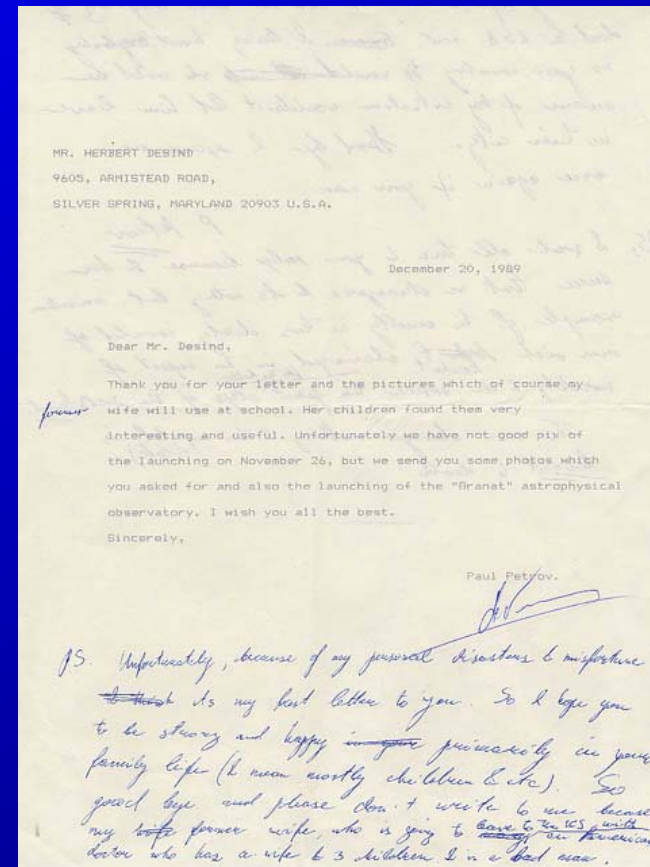 MR. HERBERT DESIND
9605, ARMISTEAD ROAD,
SILVER SPRING, MARYLAND 20903 U.S.A.
December 20, 1989
Dear Mr. Desind,
Thank you for your letter and the pictures which of course my
former
wife will use at school. Her children found them very
interesting and useful. Unfortunately we have not good pix of
the launching on November 26, but we send you some photos which
you asked for and also the launching of the "Granat" astrophysical
observatory. I wish you all the best.
Sincerely,
Paul Petrov.
PS. Unfortunately, because of my personal disasters & misfortune
its my last letter to you. So I hope you
to be strong and happy primarily in your
family life (I mean mostly children & etc). So
good bye and please don't write to me because
my former wife, who is going to leave to the US with an American
doctor who has a wife & 3 children I'm a bad man.